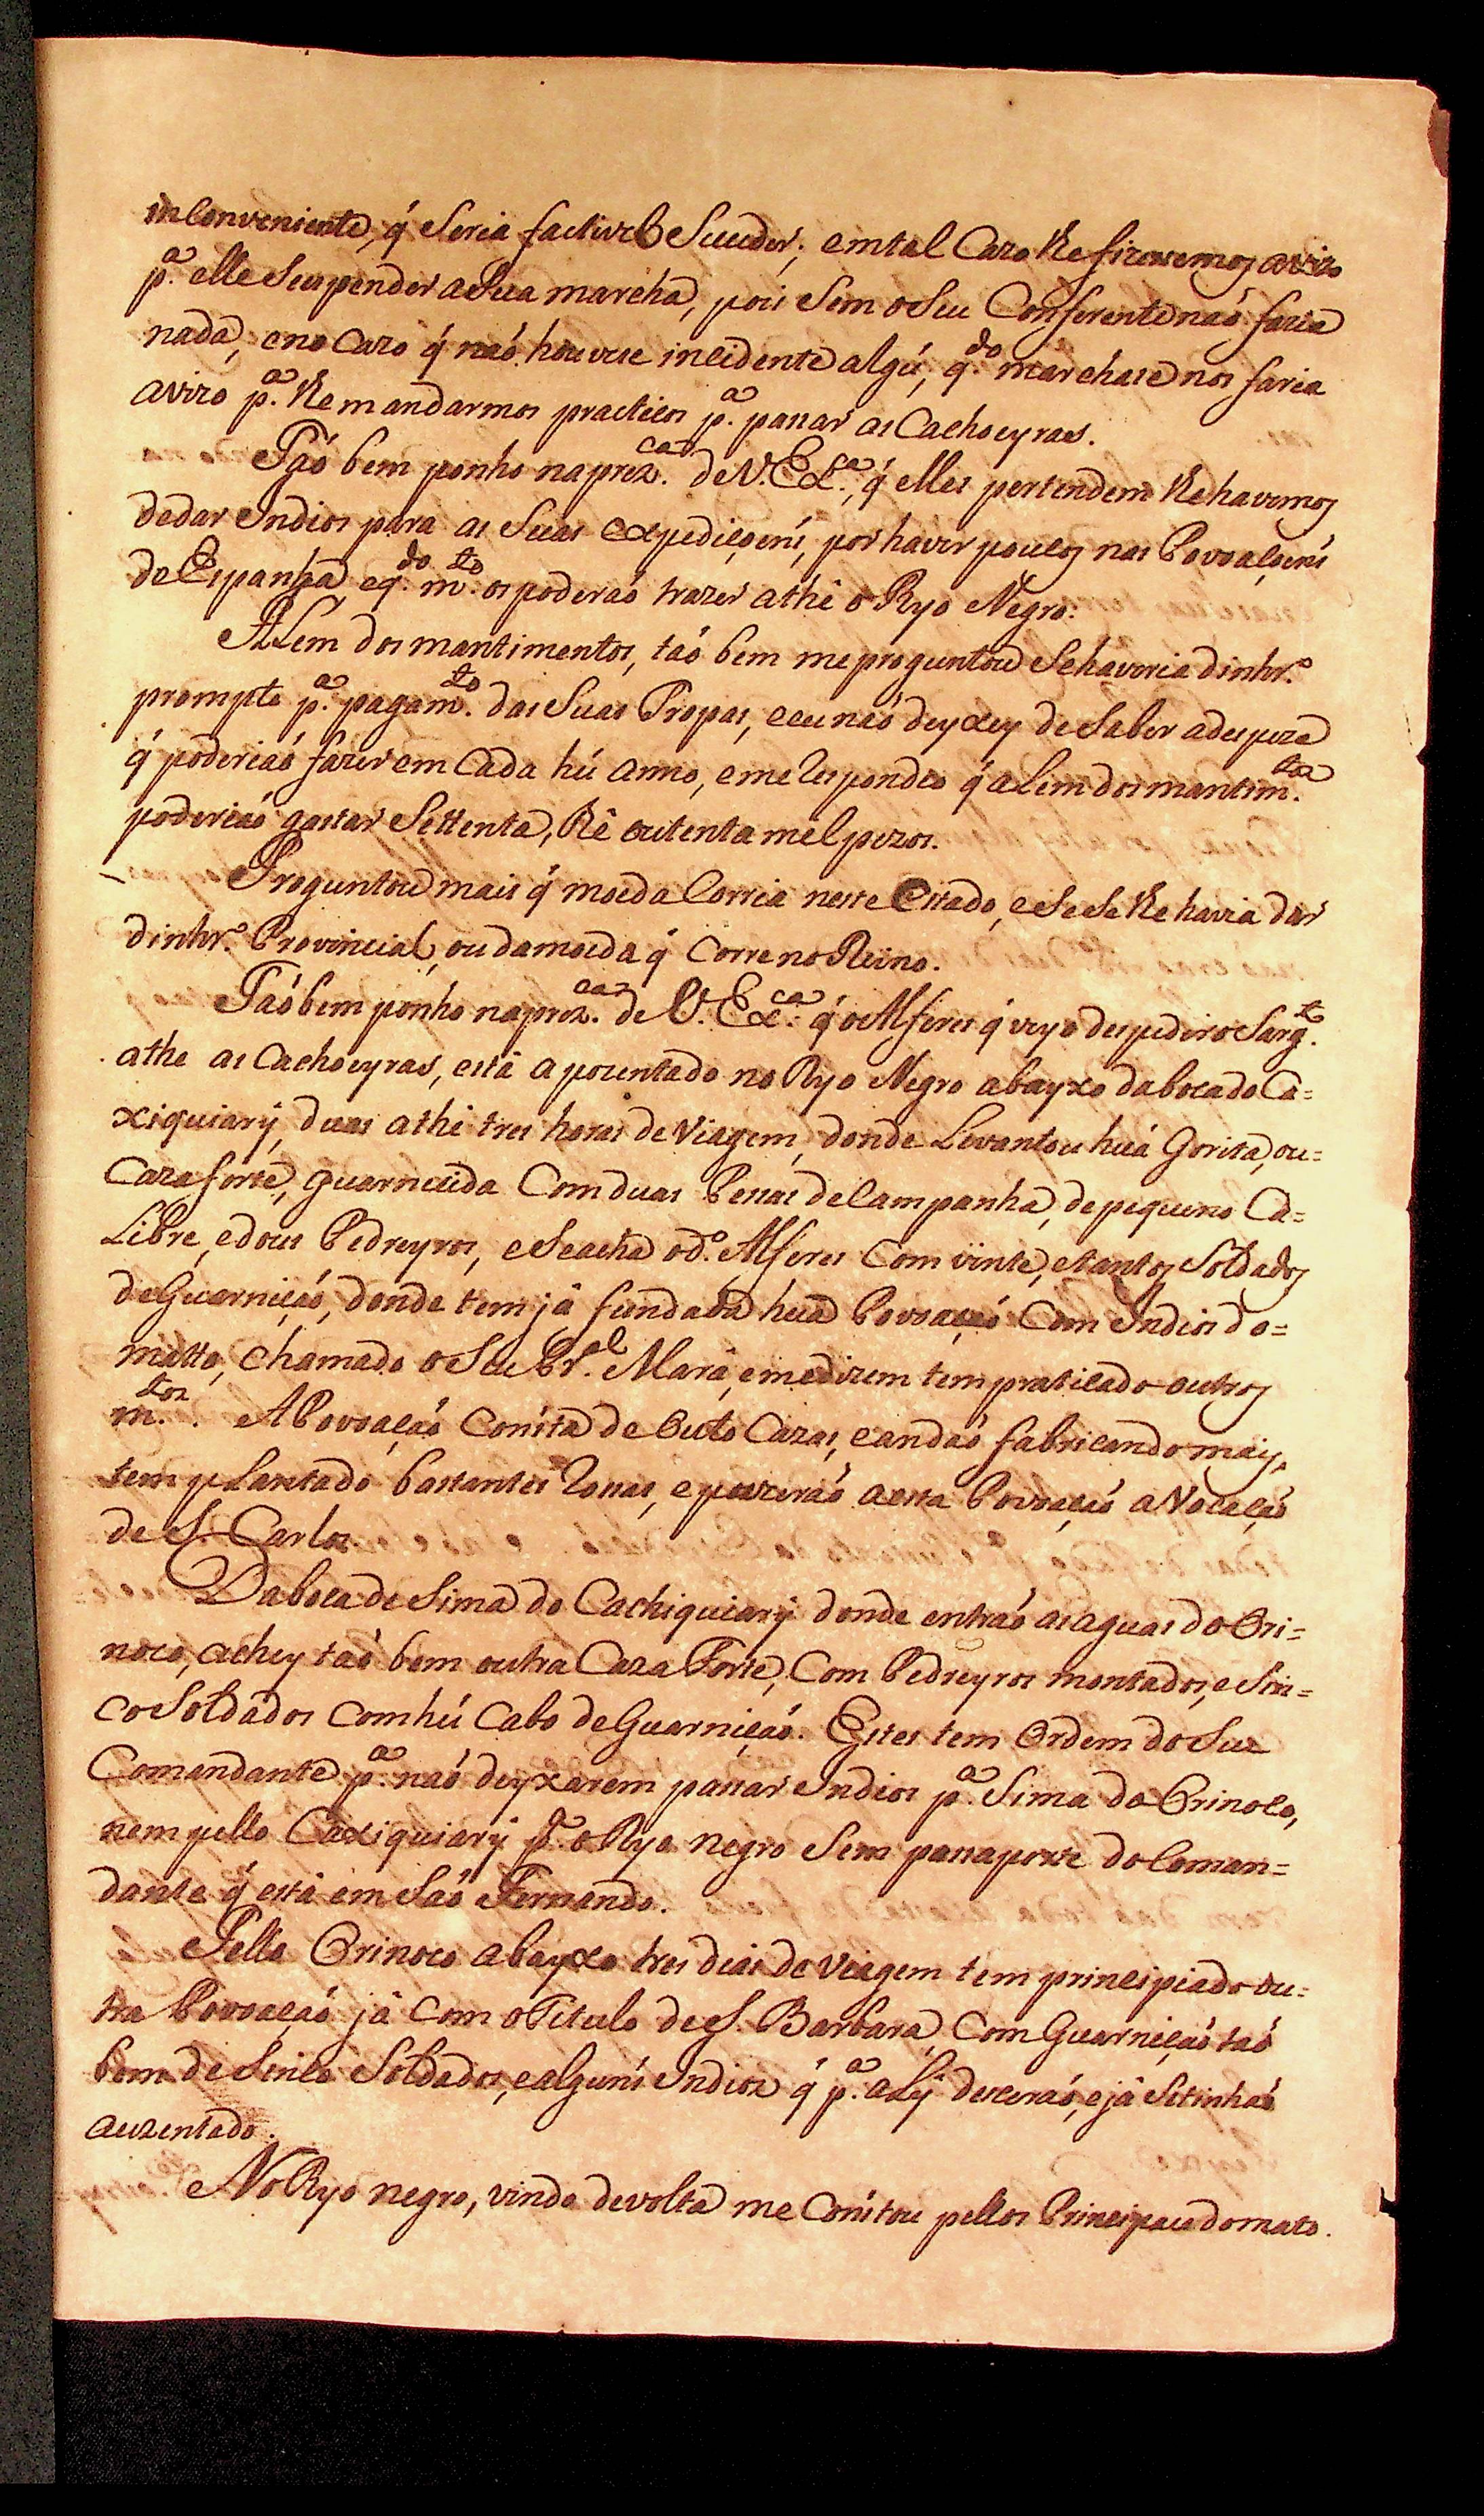 inconveniente, q́ Seria factivel Suceder; emtal Cazo lhe fizecemos avizo
p.ª elle Suspender aSua marcha, pois Sem oSeu Conferente naó faria
nada, eno cazo q́ naó houvese incidente algú, q.do marchase nos faria
avizo p.ª lhe mandarmos practicos p.ª passar as Cachoeyras.
Taó bem ponho naprez.ca de V. Ex.ca, q́ elles pertendem lhe havemos
dedar Indios para as Suas expediçoens, por haver poucos nas Povoaçoens
de Espanha, eq.do m.to os poderaó trazer athê o Ryo Negro.
Alem dos mantimentos, taó bem meproguntou Sehaveria dinhr.º
prompto p.ª pagam.to das Suas Tropas, eeu naó deyxey de Saber adespeza
q́ poderiaó fazer em Cada hú anno, eme respondeo q́ alem dos mantim.tos
poderiaó gastar Settenta, thê outenta mel pezos.
Proguntou mais q́ moeda Corria neste Estado, eSeSe lhe havia dar
dinhr.º Provincial, ou damoeda q́ Corre no Reino.
Taó bem ponho naprez.ca de V. Ex.ca q́ oAlferes q́ veyo despedir o Sarg.to
athe as Cachoeyras, está apozentado no Ryo Negro abayxo daboca do Ca=
xiquiarý, duas athê tres horas de Viagem, donde Levantou huá Gorita, ou=
Caza forte, guarnecida Com duas Pessas deCampanha, de pequeno Ca=
Libre, edous Pedreyros, eSeacha od.º Alferes Com vinte, etantos Soldados
deGuarniçaó, donde tem já fundada huá Povoaçaó Com Indios do=
matto, chamado oSeu Pr.al Marâ, eme dizem tem praticado outros
m.tos. A Povoaçaó Consta de Outo Cazas, eandaó fabricando mais,
tem pLantado bastantes rossas, epuzeraó aesta Povoaçaó a Vocaçaó
de S. Carlos.
Daboca de Sima do Cachiquiarý donde entraó asaguas do Ori=
noco, achey taó bem outra Caza Forte, Com Pedreyros montados, e Sin=
co Soldados Com hú Cabo de Guarniçaó. Estes tem Ordem do Seu
Comandante p.ª naó deyxarem passar Indios p.ª Sima do Orinoco,
nem pello Caxiquiarý p.ª o Ryo negro Sem passaporte do Coman=
dante q́ está em Saó Fernando.
Pello Orinoco abayxo tres dias de Viagem tem principiado ou=
tra Povoaçaó já Com oTitulo de S. Barbara, Com Guarniçaó taó
bem de Sinco Soldados, ealguns Indios q́ p.ª aLý desceraó, ejá Setinhaó
auzentado.
No Ryo negro, vindo devolta me Constou pellos Principaes domato.